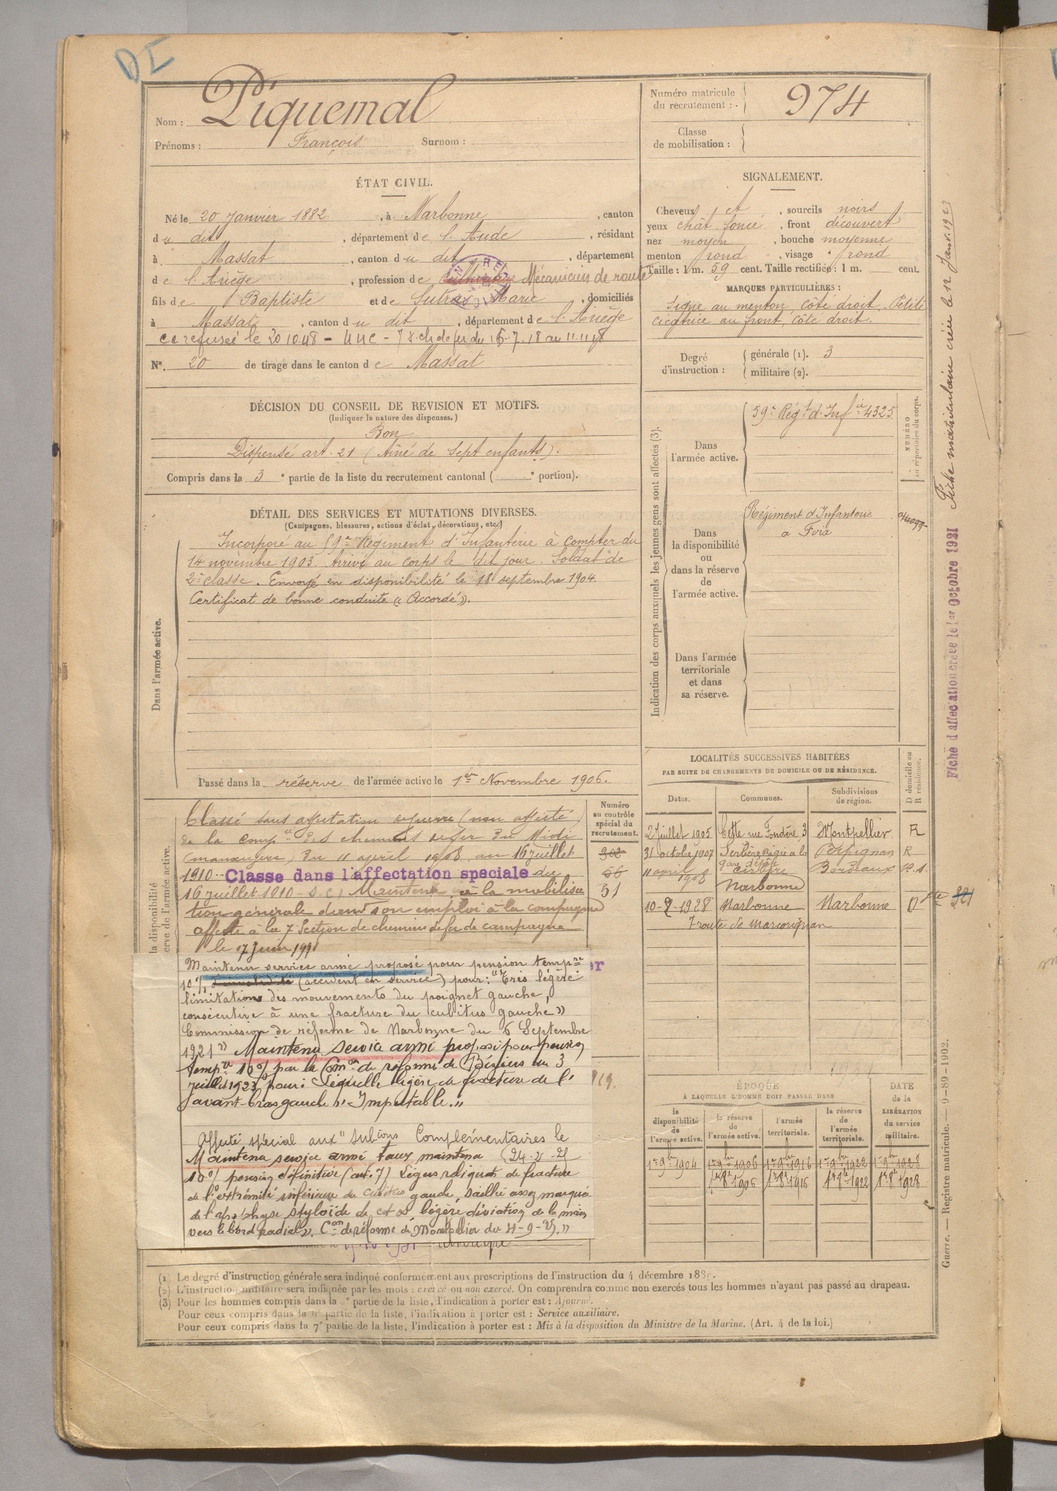 DE
Nom : Piquemal
Prénoms : François Surnom :
Numéro matricule du recrutement : 974
Classe de mobilisation :
ÉTAT CIVIL.
Né le 20 Janvier 1882, à Narbonne, canton
du dit, département de l'Aude, résidant
à Massat, canton du dit, département
de l'Ariège, profession de Mécanicien de route
fils de Baptiste et de Marie, domiciliés
à Massat, canton du dit, département de l'Ariège
cc refusée le 20 10 48 - UUC - 7 S. ch de fer du 16-7.18 au 11.11 18
N° 20 de tirage dans le canton de Massat
SIGNALEMENT.
Cheveux et sourcils noirs
yeux chât foncé, front découvert
nez moyen, bouche moyenne
menton rond, visage rond
Taille : 1 m. 59 cent. Taille rectifiée : 1 m. cent.
MARQUES PARTICULIÈRES :
Signe au menton côté droit. Petite
cicatrice au front côté droit.
Degré d'instruction : générale (1). 3
militaire (2).
DÉCISION DU CONSEIL DE REVISION ET MOTIFS.
(Indiquer la nature des dispenses.)
Bon
Dispensé art. 21 (Aîné de sept enfants).
Compris dans la 3e partie de la liste du recrutement cantonal ( e portion).
DÉTAIL DES SERVICES ET MUTATIONS DIVERSES.
(Campagnes, blessures, actions d'éclat, décorations, etc.)
Dans l'armée active.
Incorporé au 59e Régiment d'Infanterie à compter du
14 novembre 1903. Arrivé au corps le dit jour. Soldat de
2e classe. Envoyé en disponibilité le 18 septembre 1904.
Certificat de bonne conduite « Accordé ».
Passé dans la réserve de l'armée active le 1er Novembre 1906.
Indication des corps auxquels les jeunes gens sont affectés (3).
NUMÉRO au répertoire du corps.
Dans l'armée active.
59e Régt d'Infie 4325
Dans la disponibilité ou dans la réserve de l'armée active.
Régiment d'Infanterie
à Foix
Dans l'armée territoriale et dans sa réserve.
Fiche matriculaire créée le 12 Janv. 1923
Fiche d'affectation créée le 1er Octobre 1921
la disponibilité
réserve de l'armée active.
Numéro au contrôle spécial du recrutement.
51
Classé sans affectation spéciale (non affecté)
de la Compie des chemins de fer du Midi
(manœuvre) du 11 avril 1908 au 16 juillet
1910. Classé dans l'affectation spéciale du
16 juillet 1910 - S.C) Maintenu à la mobilisa
tion générale dans son emploi à la compagnie
affecté à la 7 Section de chemin de fer de campagne
le 17 Juin 19
Maintenu service armé proposé pour pension tempre
10% (accident en service) pour: "Très légère
limitations des mouvements du poignet gauche,
consécutive à une fracture du cubitus gauche »
Commission de réforme de Narbonne du 6 Septembre
1921 » Maintenu service armé proposé pour pension
tempre 10% par la Comon de réforme de Béziers du 3
juillet 1923 pour: Séquelle légère de fracture de l'
avant-bras gauche
Affecté spécial aux "Subons Complémentaires le
Maintenu service armé taux maintenu (24-2-25
10% pension définitive (art. 7) Légers reliquats de fracture
de l'extrémité inférieure du cubitus gauche, saillie assez marquée
de l'apophyse styloïde de cet os légère déviation de la main
vers le bord radial ». Con de réforme de Montpellier du 4-9-25. »
LOCALITÉS SUCCESSIVES HABITÉES
PAR SUITE DE CHANGEMENTS DE DOMICILE OU DE RÉSIDENCE.
Dates. Communes. Subdivisions de région. D domicile ou R résidence.
2 Juillet 1905 Cette rue 3 Montpellier R
31 octobre 1907 Cerbère Perpignan R
11 avril 1908 Narbonne Bordeaux R.S
10-9-1928 Narbonne Narbonne D
route de Marcorignan
ÉPOQUE
À LAQUELLE L'HOMME DOIT PASSER DANS
DATE de la LIBÉRATION du service militaire.
la disponibilité de l'armée active. la réserve de l'armée active. l'armée territoriale. la réserve de l'armée territoriale.
1 9bre 1904 1 9bre 1906 1 9bre 1916 1 9bre 1922 1 9bre 1928
1er 8bre 1906 1er 8bre 1916 1er 8bre 1922 1er 8bre 1928
Guerre. — Registre matricule. — 9-89-1902.
(1) Le degré d'instruction générale sera indiqué conformément aux prescriptions de l'instruction du 4 décembre 188
(2) L'instruction militaire sera indiquée par les mots : exercé ou non exercé. On comprendra comme non exercés tous les hommes n'ayant pas passé au drapeau.
(3) Pour les hommes compris dans la e partie de la liste, l'indication à porter est : Ajourné.
Pour ceux compris dans la e partie de la liste, l'indication à porter est : Service auxiliaire.
Pour ceux compris dans la 7e partie de la liste, l'indication à porter est : Mis à la disposition du Ministre de la Marine. (Art. 4 de la loi.)